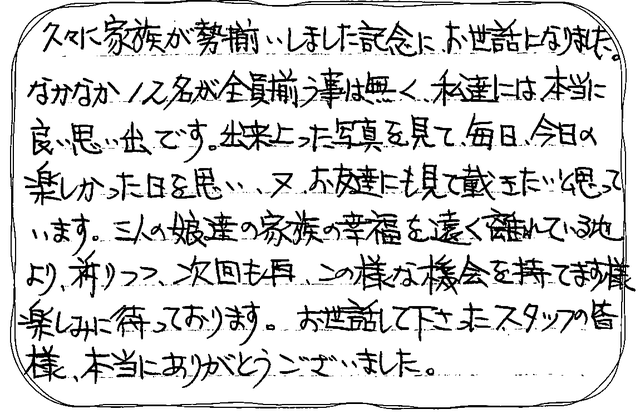 久々に家族が勢揃いしました記念にお世話になりました。
なかなか12名が全員揃う事は無く、私達には本当に
良い思い出です。出来上った写真を見て、毎日、今日の
楽しかった日を思い、又、お友達にも見て戴きたいと思って
います。三人の娘達の家族の幸福を遠く離れている地
より、祈りつつ、次回も再、この様な機会を持てます様
楽しみに待っております。お世話して下さったスタッフの皆
様、本当にありがとうございました。